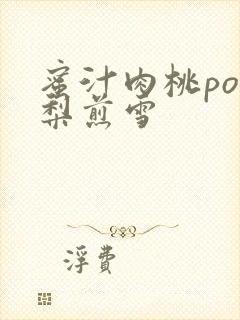 蜜汁肉桃po
梨煎雪
浮費